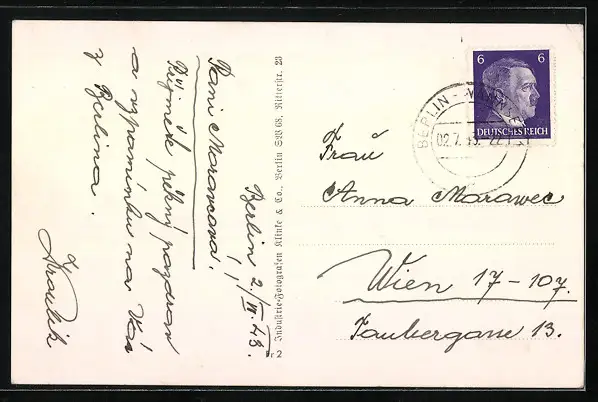 Berlin 2./VII.43.
Paní Moravcová!
Přijměte pěkný pozdrav
a vzpomínku na Vás
z Berlína.
Industrie-Fotografen Klinke & Co., Berlin SW 68, Ritterstr. 23
Nr 2
6 6
DEUTSCHES REICH
BERLIN-WANNSEE
02.7.43. 22
Frau
Anna Marawec
Wien 17-107.
Taubergasse 13.